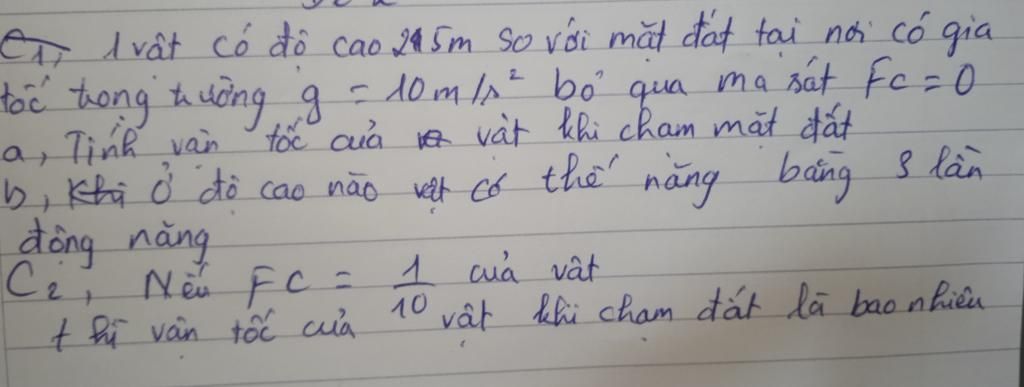 C1, 1 vật có độ cao 45m so với mặt đất tại nơi có gia
tốc trọng trường g = 10m/s² bỏ qua ma sát Fc = 0
a, Tính vận tốc của vật khi chạm mặt đất
b, Ở độ cao nào vật có thế năng bằng 3 lần
động năng
C2, Nếu FC = 1/10 của vật
thì vận tốc của vật khi chạm đất là bao nhiêu